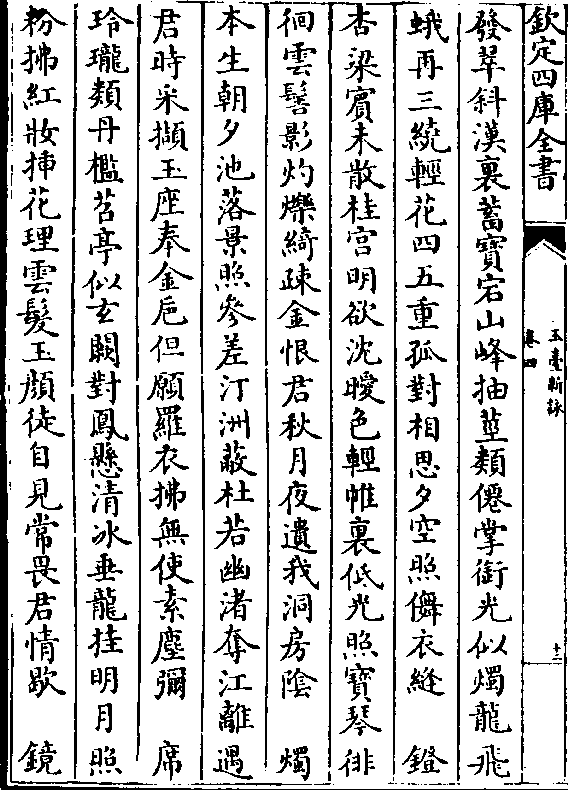 欽定四庫全書
玉臺新詠
卷四
十二
發翠斜漢裏蓄寳宕山峰抽莖類僊掌銜光似燭龍飛
蛾再三繞輕花四五重孤對相思夕空照儛衣縫　鐙
杏梁賔未散桂宫明欲沈曖色輕帷裏低光照寳琴徘
徊雲髻影灼爍綺疎金恨君秋月夜遺我洞房陰　燭
本生朝夕池落景照參差汀洲蔽杜若幽渚奪江離遇
君時采擷玉座奉金巵但願羅衣拂無使素塵彌　席
玲瓏類丹檻苕亭似玄闕對鳳懸清冰垂龍挂明月照
粉拂紅妝揷花理雲髮玉顔徒自見常畏君情歇　鏡